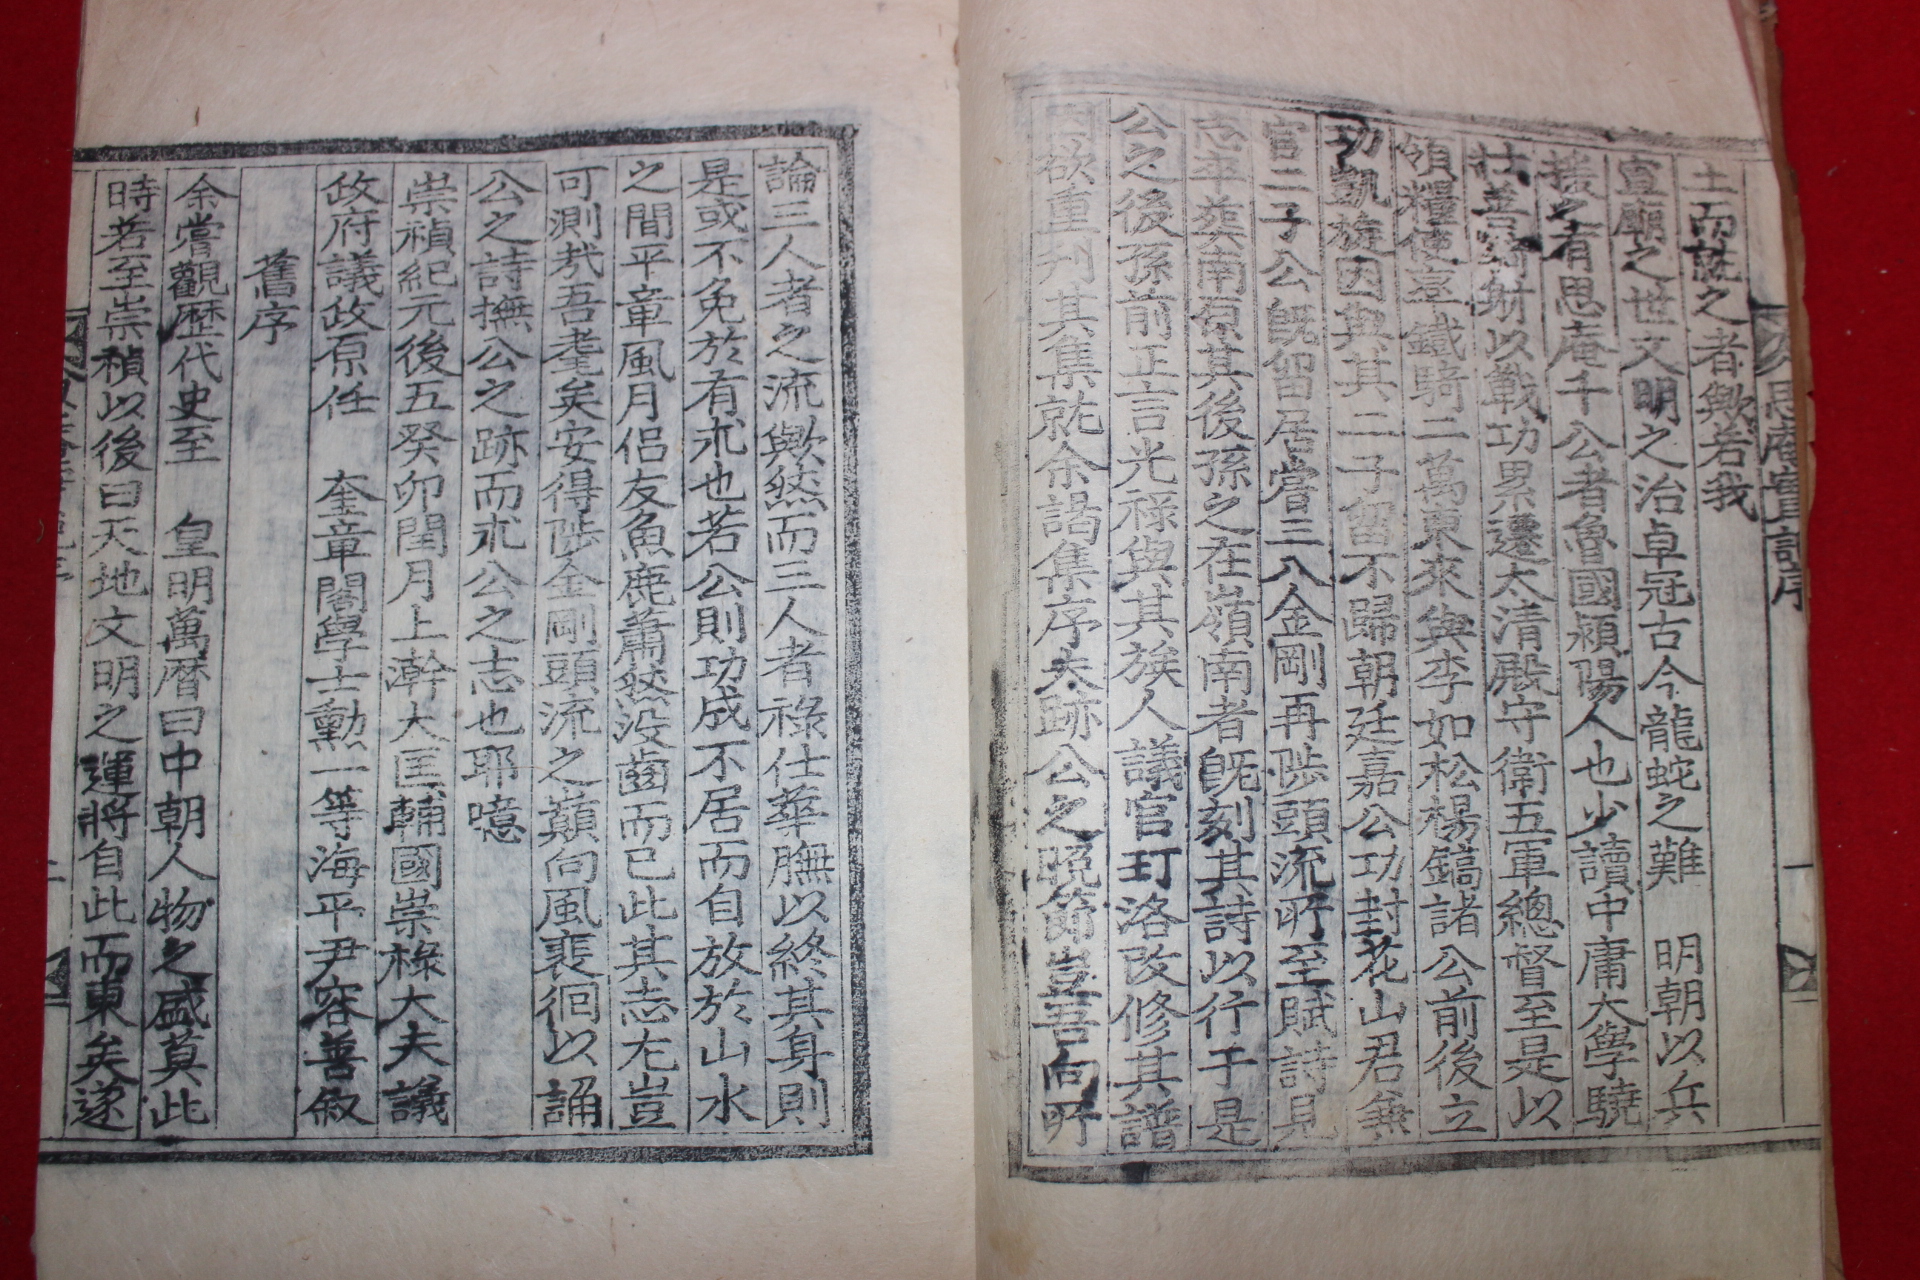 思庵實記序 一
土而䟽之者歟若我
宣廟之世文明之治卓冠古今龍蛇之難 明朝以兵
援之有思庵千公者魯國潁陽人也少讀中庸大學驍
壯善騎射以戰功累遷太清殿守衛五軍總督至是以
領糧使䢖鐵騎二萬東來與李如松楊鎬諸公前後立
功凱旋因與其二子留不歸朝廷嘉公功封花山君無
官二子公旣留居嘗三入金剛再陟頭流所至賦詩見
志卒葬南原其後孫之在嶺南者旣刻其詩以行于是
公之後孫前正言光祿與其族人議官玎洛改修其譜
因欲重刋其集就余謁集序夫跡公之晩節豈吾向所
論三人者之流歟然而三人者祿仕華膴以終其身則
是或不免於有朮也若公則功成不居而自放於山水
之間平章風月侶友魚鹿蕭然没齒而已此其志尢豈
可測㢤吾耄矣安得陟金剛頭流之巓向風裵徊以誦
公之詩撫公之跡而朮公之志也耶噫
崇禎紀元後五癸卯閏月上澣大匡輔國崇祿大夫議
政府議政原任 奎章閣學士勳一等海平尹容善叙
舊序
余嘗觀歷代史至 皇明萬曆曰中朝人物之盛莫此
時若至崇禎以後曰天地文明之運將自此而東矣遂